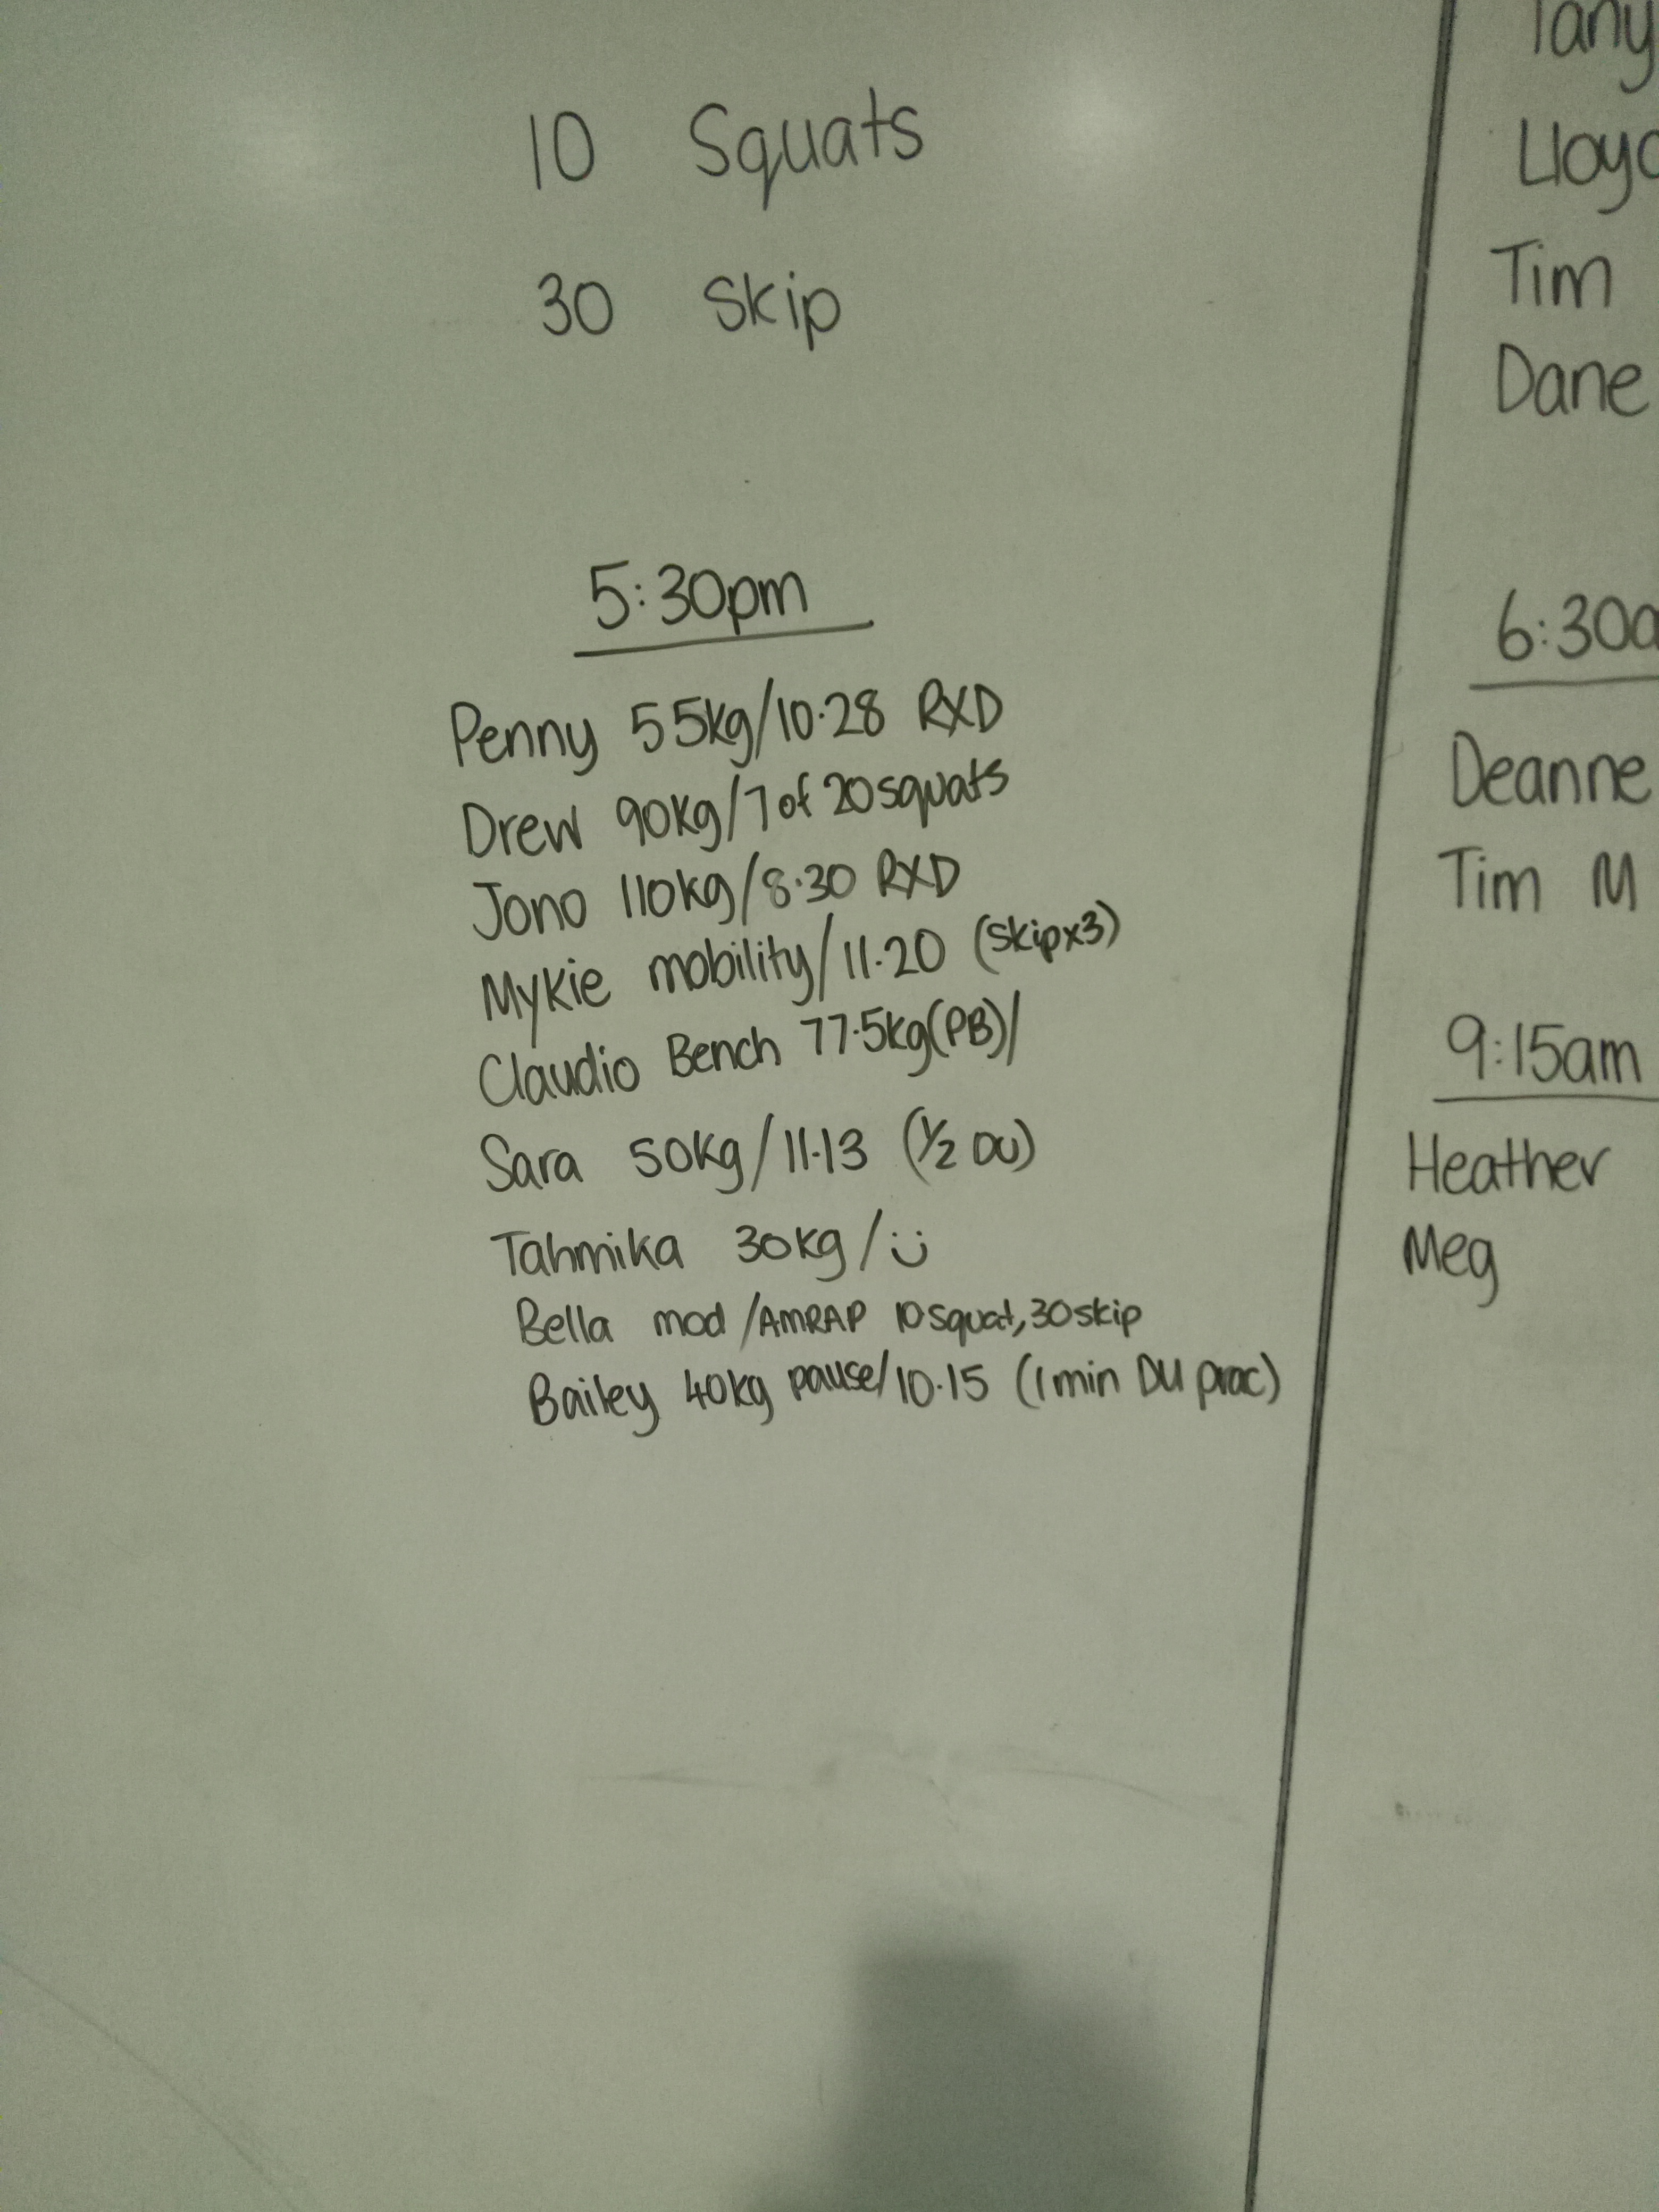 10 Squats
30 Skip
5:30pm
Penny 55kg/10.28 RXD
Drew 90kg/7 of 20 squats
Jono 110kg/8.30 RXD
Mykie mobility/11.20 (skipx3)
Claudio Bench 77.5kg(PB)/
Sara 50kg/11.13 (1/2 DU)
Tahmika 30kg/ :)
Bella mod/AMRAP 10 squat, 30 skip
Bailey 40kg pause/10.15 (1 min DU prac)
Tim
Dane
6:30a
Deanne
Tim M
9:15am
Heather
Meg